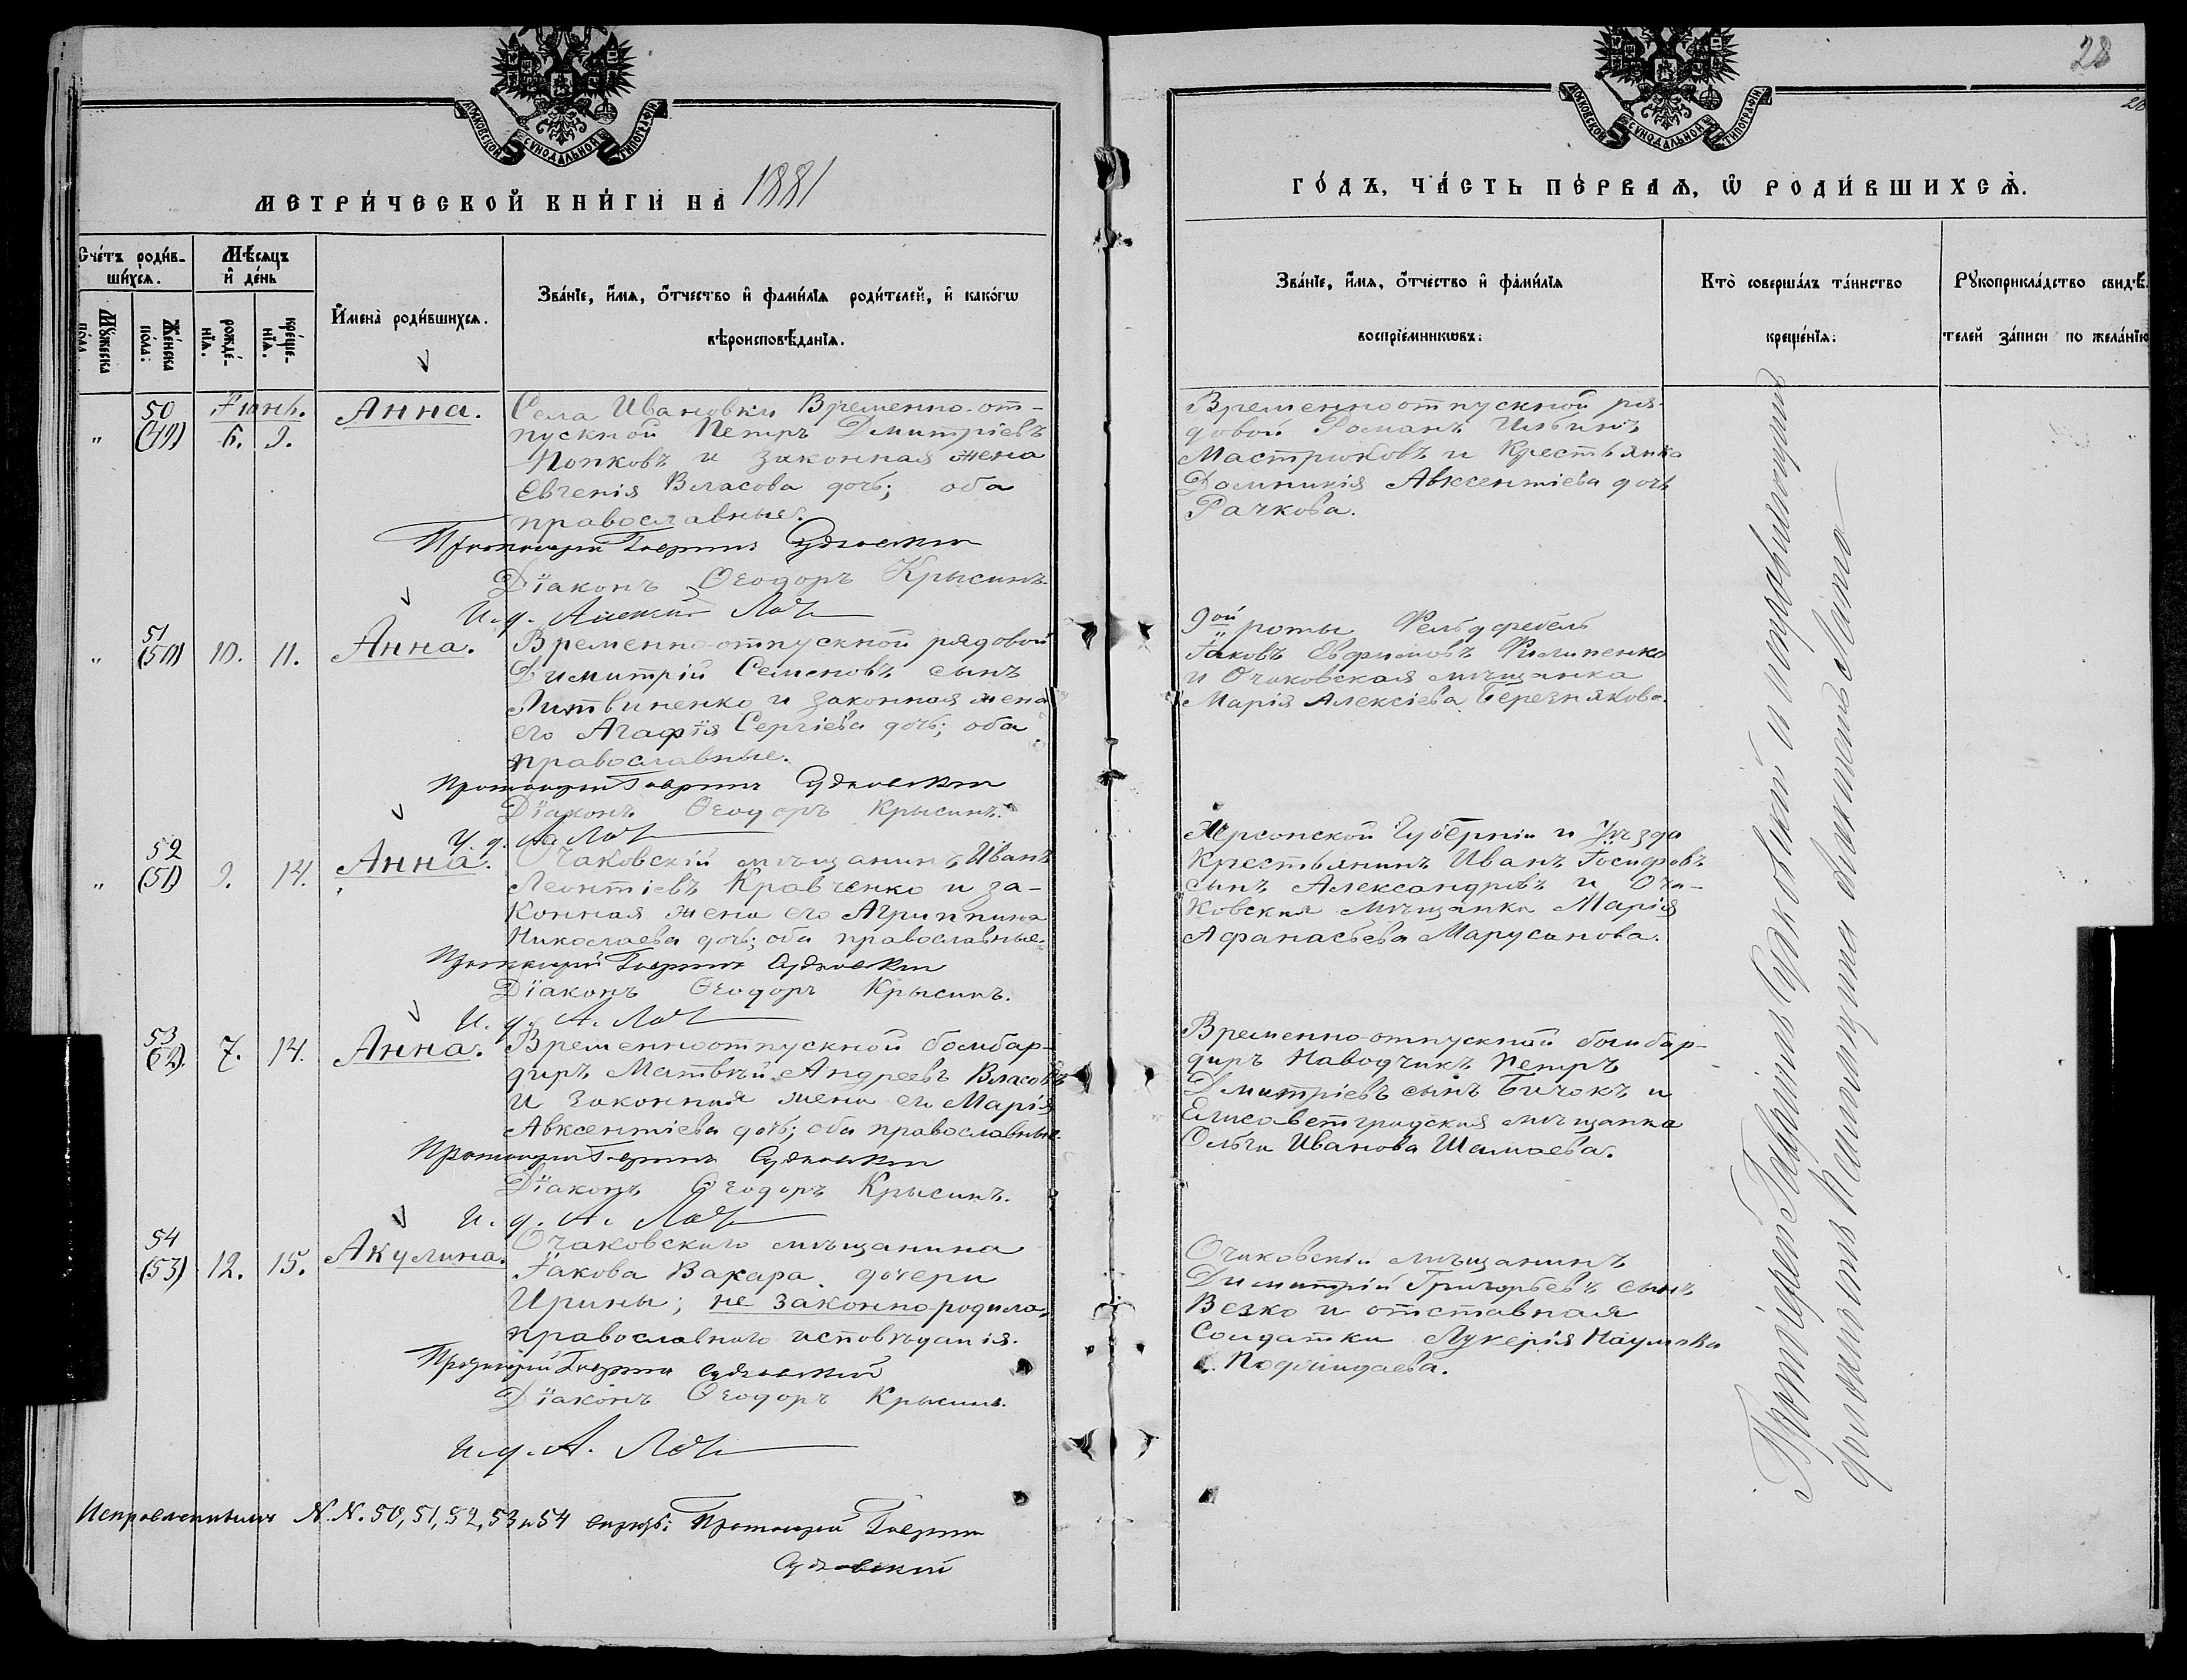 28
28
МОСКОВСКОЙ СѴНОДАЛЬНОЙ ТИПОГРАФІИ
МОСКОВСКОЙ СѴНОДАЛЬНОЙ ТИПОГРАФІИ
МЕТРИ́ЧЕСКОЙ КНИ́ГИ НА 1881
ГО́ДЪ, ЧА́СТЬ ПЕ́РВАѦ, Ѡ РОДИ́ВШИХСѦ.
Сче́тъ роди́в-
ши́хсѧ.
Мꙋжеска
по́ла
Же́нска
по́ла:
Мѣ́сѧцъ
и де́нь
рожде́-
нїѧ.
креще-
нїѧ.
И҆мена̀ роди́вшихсѧ.
Зва́нїе, и҆́мѧ, ѻ҆́тчество и҆ фамилїѧ роди́телей, и҆ како́гѡ
вѣроисповѣ́данїѧ.
Зва́нїе, и҆́мѧ, ѻ҆́тчество и҆ фами́лїѧ
воспрїе́мникѡвъ:
Кто̀ соверша́лъ та́инство
креще́нїѧ:
Рꙋкоприкла́дство свидѣ́-
телей за́писи по жела́нїю
50
(49)
"
Іюнь.
6. 9.
Анна.
Села Ивановки Временно-от-
пускной Петръ Дмитріевъ
Попковъ и законная жена
Евгенія Власова дочь; оба
православные.
Протоіерей Гавріилъ Судковскій
Діаконъ Ѳеодоръ Крысинъ.
И. д.
Временноотпускной ря-
довой Романъ Ильинъ
Мастрюковъ и Крестьянка
Домникія Авксентіева дочь
Рачкова.
51
(50)
"
10. 11.
Анна.
Временно-отпускной рядовой
Димитрій Семеновъ сынъ
Литвиненко и законная жена
его Агафія Сергіева дочь; оба
православные.
Протоіерей Гавріилъ Судковскій
Діаконъ Ѳеодоръ Крысинъ.
И. д.
9ой роты Фельдфебель
Іаковъ Евфимовъ Филипенко
и Очаковская мѣщанка
Марія Алексіева Березнякова.
52
(51)
"
9. 14.
Анна.
Очаковскій мѣщанинъ Иванъ
Леонтіевъ Кравченко и за-
конная жена его Агриппина
Николаева дочь; оба православные.
Протоіерей Гавріилъ Судковскій
Діаконъ Ѳеодоръ Крысинъ.
И. д. А.
Херсонской Губерніи и Уѣзда
Крестьянинъ Иванъ Іосифовъ
сынъ Александровъ и Оча-
ковская мѣщанка Марія
Афанасьева Марусанова.
53
(52).
7. 14.
Анна.
Временноотпускной бомбар-
диръ Матвѣй Андреевъ Власовъ
и законная жена его Марія
Авксентіева дочь; оба православные.
Протоіерей Гавріилъ Судковскій
Діаконъ Ѳеодоръ Крысинъ.
И. д. А.
Временно-отпускной бомбар-
диръ Наводчикъ Петръ
Дмитріевъ сынъ Бичокъ и
Елисаветградская мѣщанка
Ольга Иванова Шамаева.
54
(53)
12. 15.
Акулина.
Очаковскаго мѣщанина
Іакова Вакара дочери
Ирины; не законно-родила,
православнаго исповѣданія.
Протоіерей Гавріилъ Судковскій
Діаконъ Ѳеодоръ Крысинъ.
И. д. А.
Очаковскій мѣщанинъ
Димитрій Григорьевъ сынъ
Везко и отставная
Солдатка Лукерія Наумова
Протоіерей Гавріилъ Судковскій и исправляющій
должность
N. N. 50, 51, 52, 53 и 54 Протоіерей Гавріилъ
Судковскій